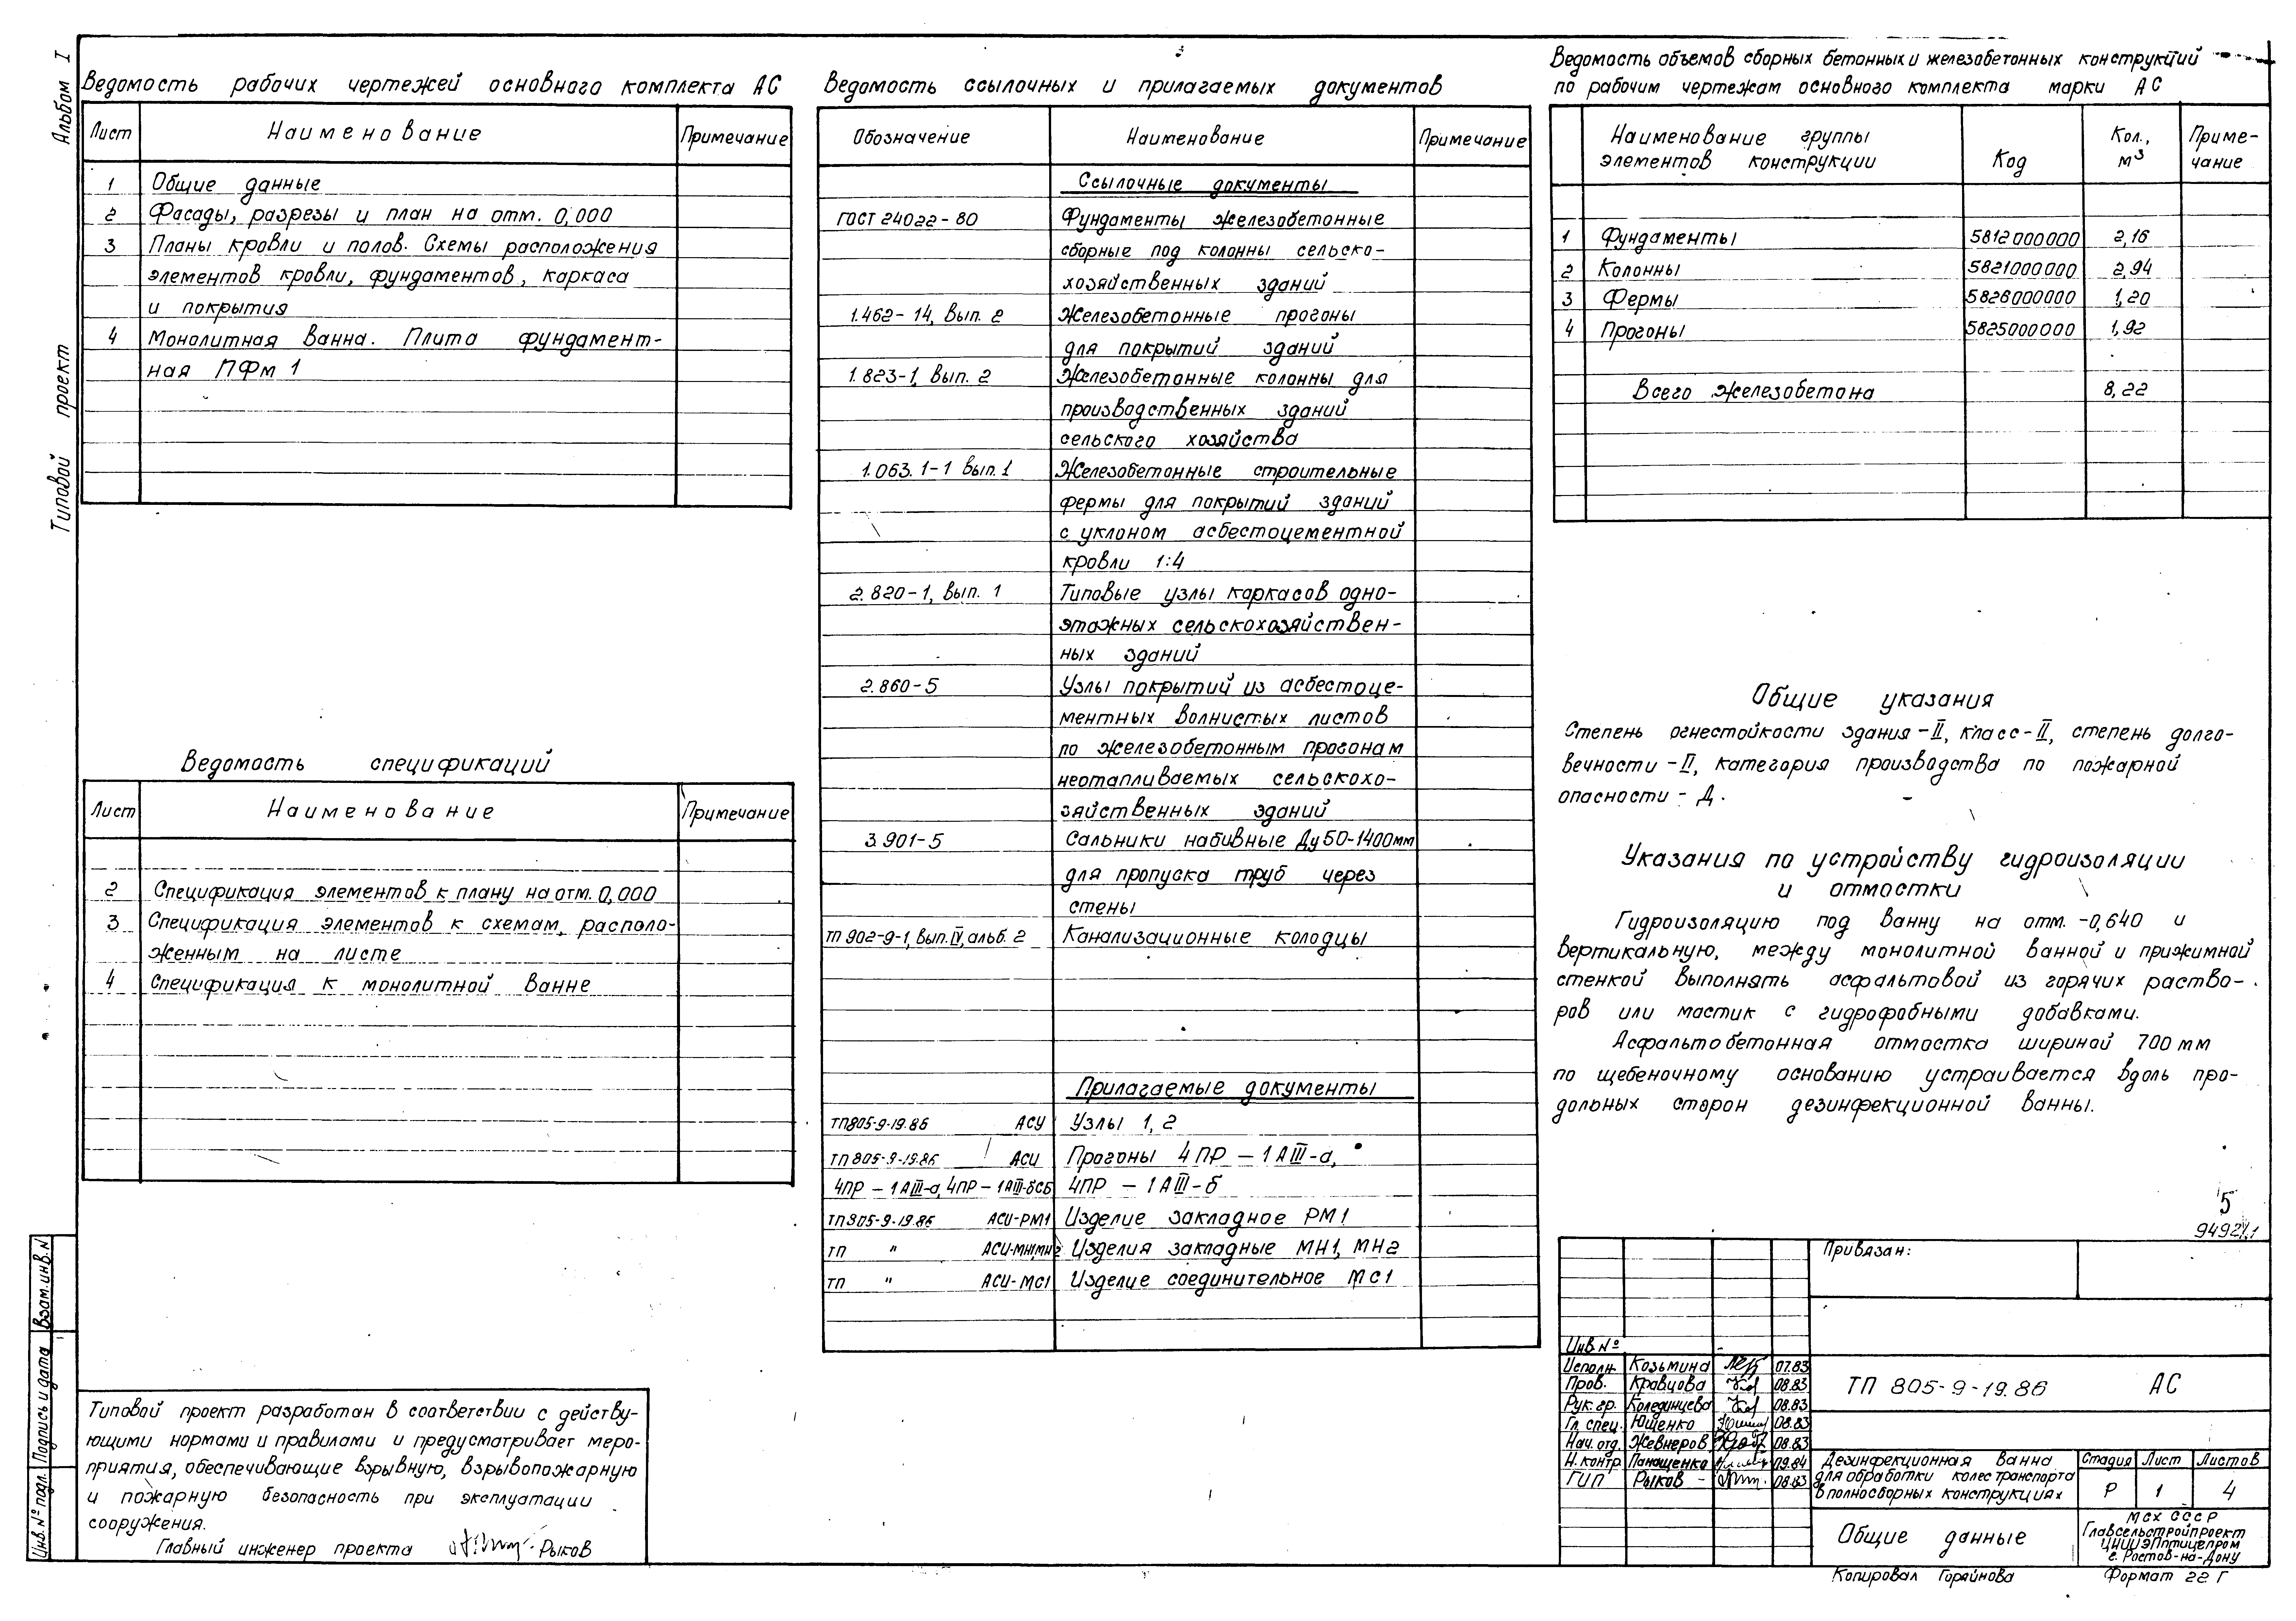 Альбом I
Типовой проект
Ведомость рабочих чертежей основного комплекта АС
Лист Наименование Примечание
1 Общие данные
2 Фасады, разрезы и план на отм. 0,000
3 Планы кровли и полов. Схемы расположения
элементов кровли, фундаментов, каркаса
и покрытия
4 Монолитная ванна. Плита фундамент-
ная ПФм 1
Ведомость спецификаций
Лист Наименование Примечание
2 Спецификация элементов к плану на отм. 0,000
3 Спецификация элементов к схемам, располо-
женным на листе
4 Спецификация к монолитной ванне
Типовой проект разработан в соответствии с действу-
ющими нормами и правилами и предусматривает меро-
приятия, обеспечивающие взрывную, взрывопожарную
и пожарную безопасность при эксплуатации
сооружения.
Главный инженер проекта Рыков
Инв. № подл. Подпись и дата Взам.инв.N
Ведомость ссылочных и прилагаемых документов
Обозначение Наименование Примечание
Ссылочные документы
ГОСТ 24022-80 Фундаменты железобетонные
сборные под колонны сельско-
хозяйственных зданий
1.462-14, Вып. 2 Железобетонные прогоны
для покрытий зданий
1.823-1, Вып. 2 Железобетонные колонны для
производственных зданий
сельского хозяйства
1.063.1-1 Вып. 1 Железобетонные строительные
фермы для покрытий зданий
с уклоном асбестоцементной
кровли 1:4
2.820-1, Вып. 1 Типовые узлы каркасов одно-
этажных сельскохозяйствен-
ных зданий
2.860-5 Узлы покрытий из асбестоце-
ментных волнистых листов
по железобетонным прогонам
неотапливаемых сельскохо-
зяйственных зданий
3.901-5 Сальники набивные Ду 50-1400мм
для пропуска труб через
стены
ТП 902-9-1, Вып. IV, альб. 2 Канализационные колодцы
Прилагаемые документы
ТП805-9-19.86 АСУ Узлы 1, 2
ТП 805-9-19.86 АСИ Прогоны 4ПР – 1АIII-а,
4ПР – 1АIII-а, 4ПР – 1АIII-бСБ 4ПР – 1АIII-б
ТП805-9-19.86 АСИ-РМ1 Изделие закладное РМ1
ТП " АСИ-МН1,МН2 Изделия закладные МН1, МН2
ТП " АСИ-МС1 Изделие соединительное МС1
Ведомость объемов сборных бетонных и железобетонных конструкций
по рабочим чертежам основного комплекта марки АС
Наименование группы
элементов конструкции Код Кол.,
м³ Приме-
чание
1 Фундаменты 5812000000 2,16
2 Колонны 5821000000 2,94
3 Фермы 5826000000 1,20
4 Прогоны 5825000000 1,92
Всего железобетона 8,22
Общие указания
Степень огнестойкости здания - II, класс - II, степень долго-
вечности - II, категория производства по пожарной
опасности - Д.
Указания по устройству гидроизоляции
и отмостки
Гидроизоляцию под ванну на отм. -0,640 и
вертикальную, между монолитной ванной и прижимной
стенкой выполнять асфальтовой из горячих раство-
ров или мастик с гидрофобными добавками.
Асфальтобетонная отмостка шириной 700 мм
по щебеночному основанию устраивается вдоль про-
дольных сторон дезинфекционной ванны.
5
9492/1
Привязан:
Инв №
Исполн. Козьмина 07.83
Пров. Кравцова 08.83
Рук. гр. Колединцева 08.83
Гл. спец. Ющенко 08.83
Нач. отд. Жевнеров 08.83
Н. контр. Панащенко 09.84
ГИП Рыков 08.83
ТП 805-9-19.86 АС
Дезинфекционная ванна
для обработки колес транспорта
в полносборных конструкциях
Стадия Лист Листов
Р 1 4
Общие данные
МСХ СССР
Главсельстройпроект
ЦНИИЭПптицепром
г. Ростов-на-Дону
Копировал Горяйнова Формат 22 Г